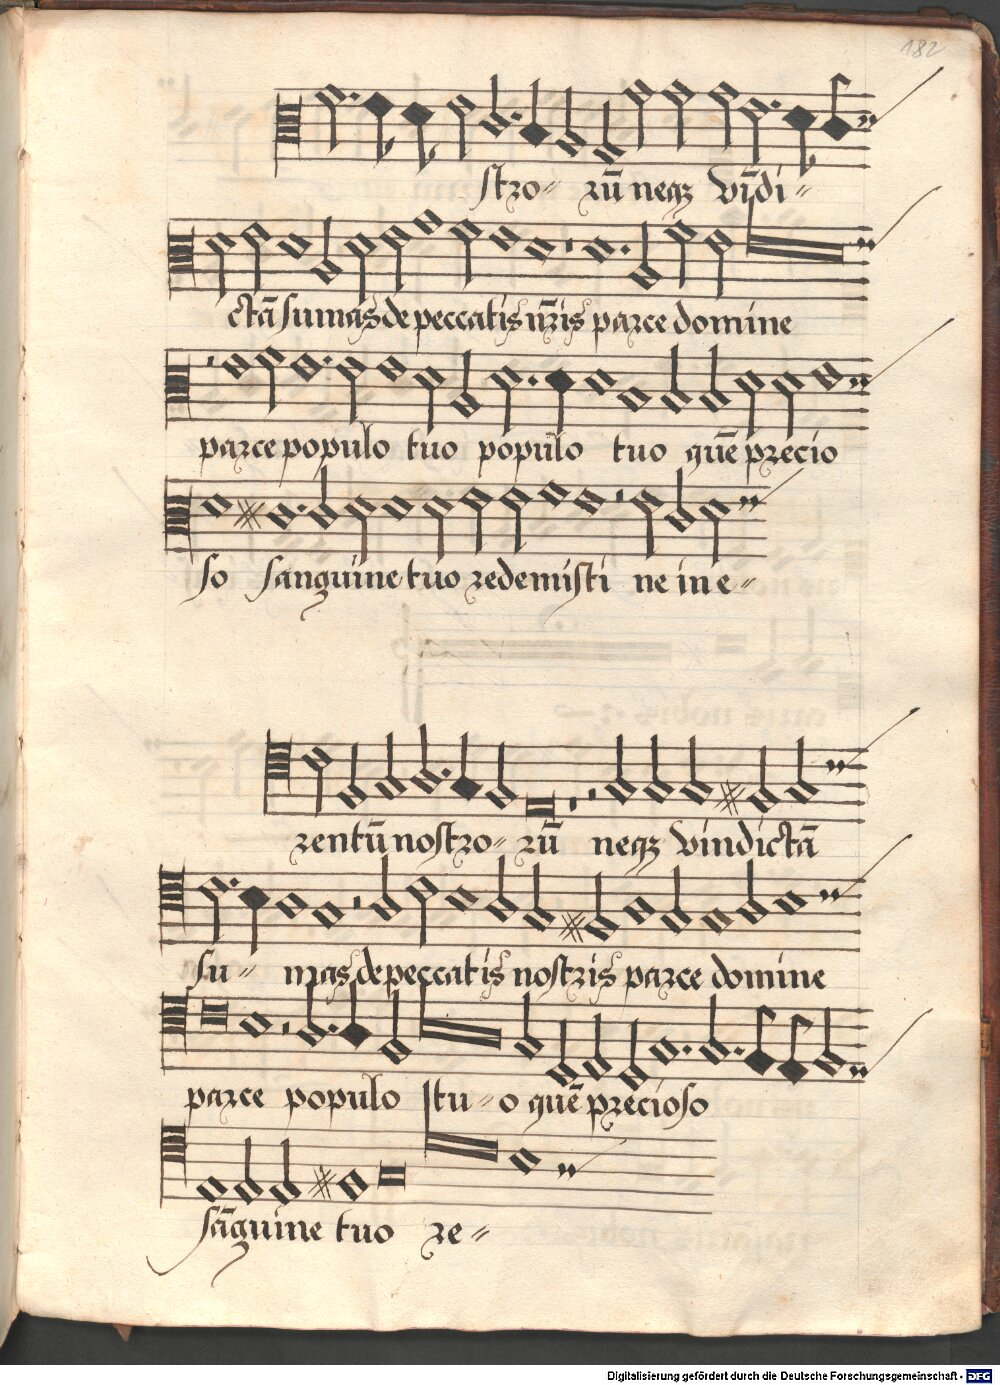 182
stro- rū neqz vīdi-
ctā sumas de peccatis nr̄is parce domine
parce populo tuo populo tuo quē precio
so sanguine tuo redemisti ne in e-
rentū nostro- rū neqz vindictā
su- mas de peccatis nostris parce domine
parce populo stu- o quē precioso
sāguine tuo re-
Digitalisierung gefördert durch die Deutsche Forschungsgemeinschaft - DFG